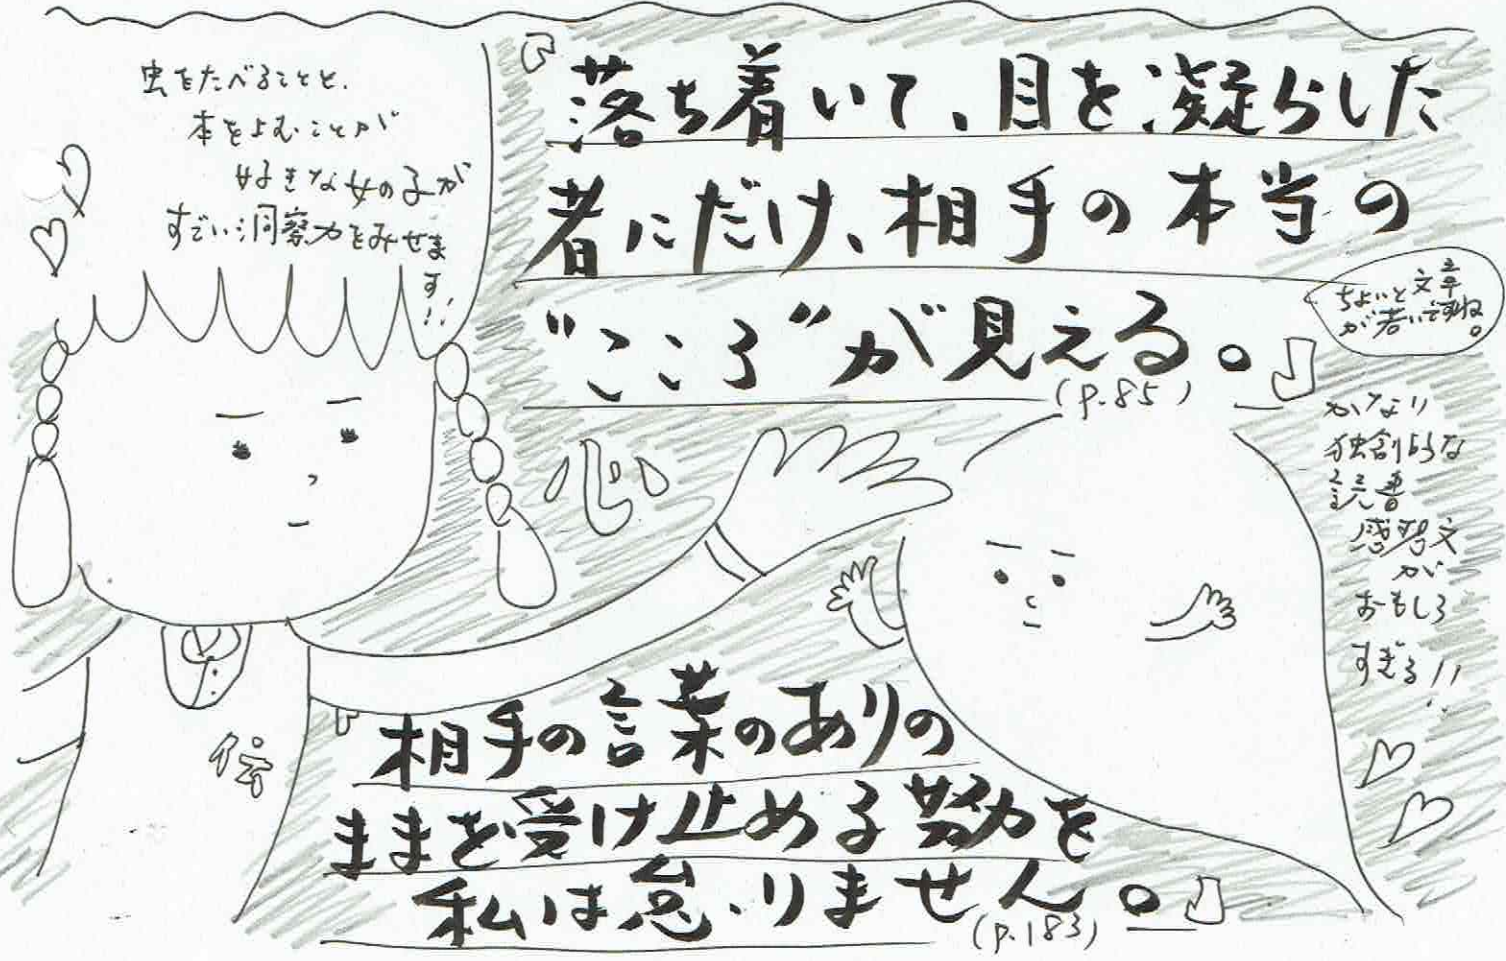 虫をたべることと、
本をよむことが
好きな女の子が
すごい洞察力をみせま
す!!
『落ち着いて、目を凝らした
者にだけ、相手の本当の
“こころ”が見える。』
(P.85)
ちょいと文章
が若いですね。
かなり
独創的な
読書
感想文
が
おもしろ
すぎる!!
心
伝
『相手の言葉のありの
ままを受け止める努力を
私は怠りません。』
(P.183)